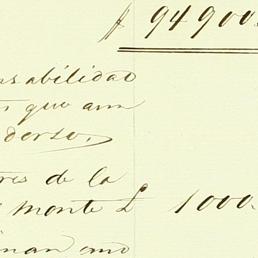 $ 94900.
sabilidad
que aun
dorso.)
res de la
monte £ 1000.